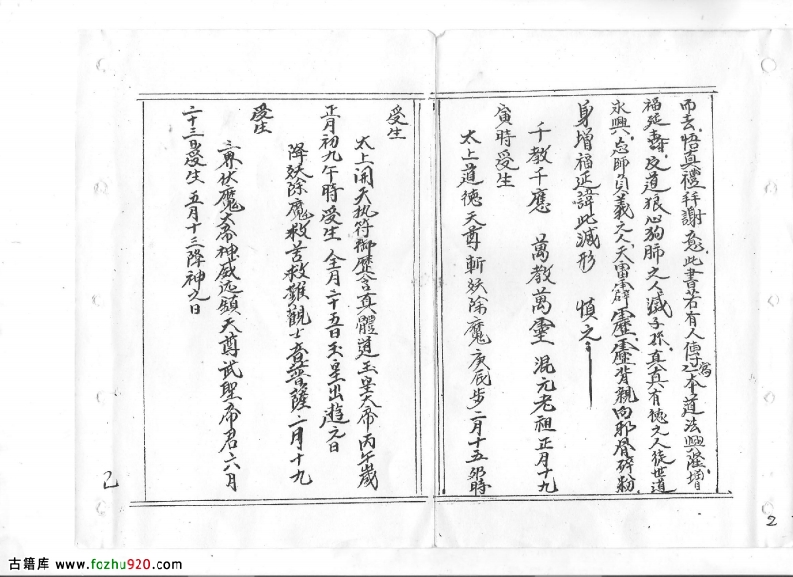 而去悟真禮拜謝意此書若有人傳寫之本道法興隆增
福延壽反道狠心狗肺之人滅子孫真真有德之人徒世道
永興忘師負義之人天雷霹靂靈背親向邪骨碎粉
身增福延諱此滅形 慎之
千教千應 萬教萬靈 混元老祖正月十九
寅時受生
太上道德天尊斬妖除魔庚辰步二月十五卯時
受生
太上開天执符御歷含真體道玉皇大帝丙午歲
正月初九午時受生 全月二十五日玉皇出遊元日
降妖除魔救苦救難觀士音普薩二月十九
受生
三界伏魔大帝神威远镇天尊武聖帝君六月
二十三日受生 五月十三降神之日
2
2
古籍库 www.fozhu920.com